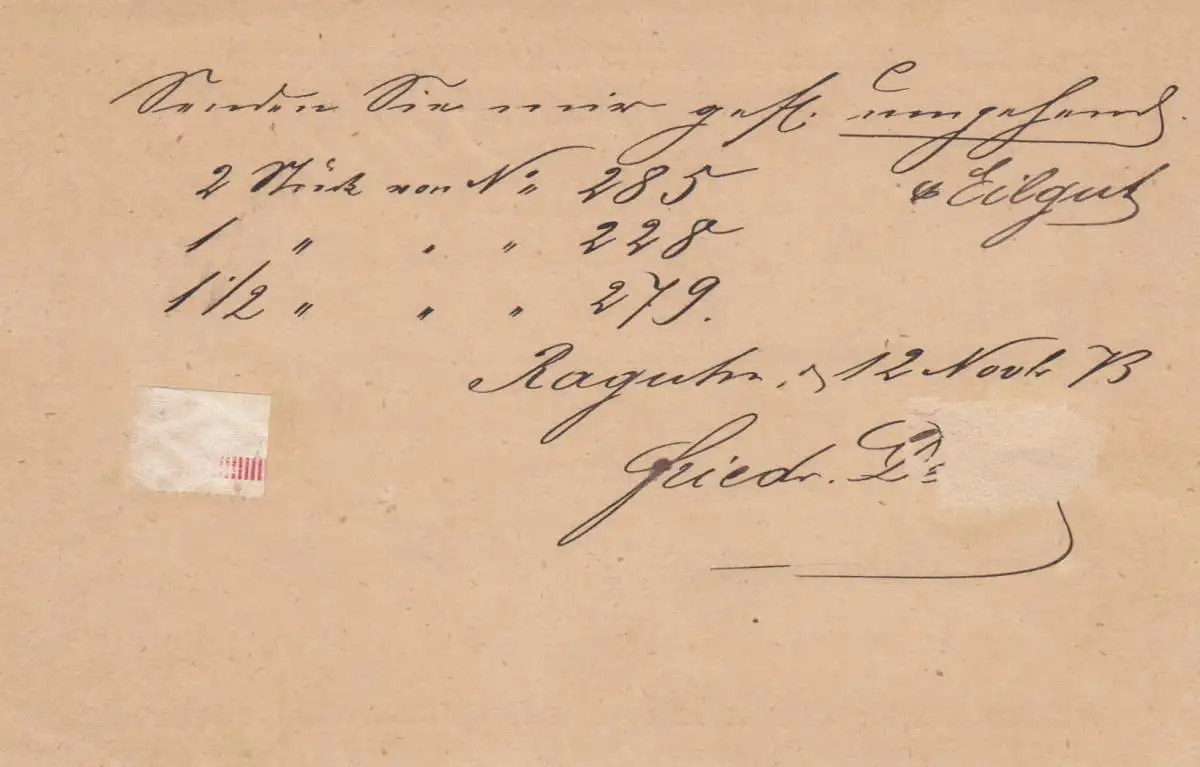 Senden Sie mir gefl. umgehend.
2 Stück von No 285 Eilgut
1 " " " 228
1 1/2 " " " 279.
Raguhn, d 12 Novbr 73
Friedr.